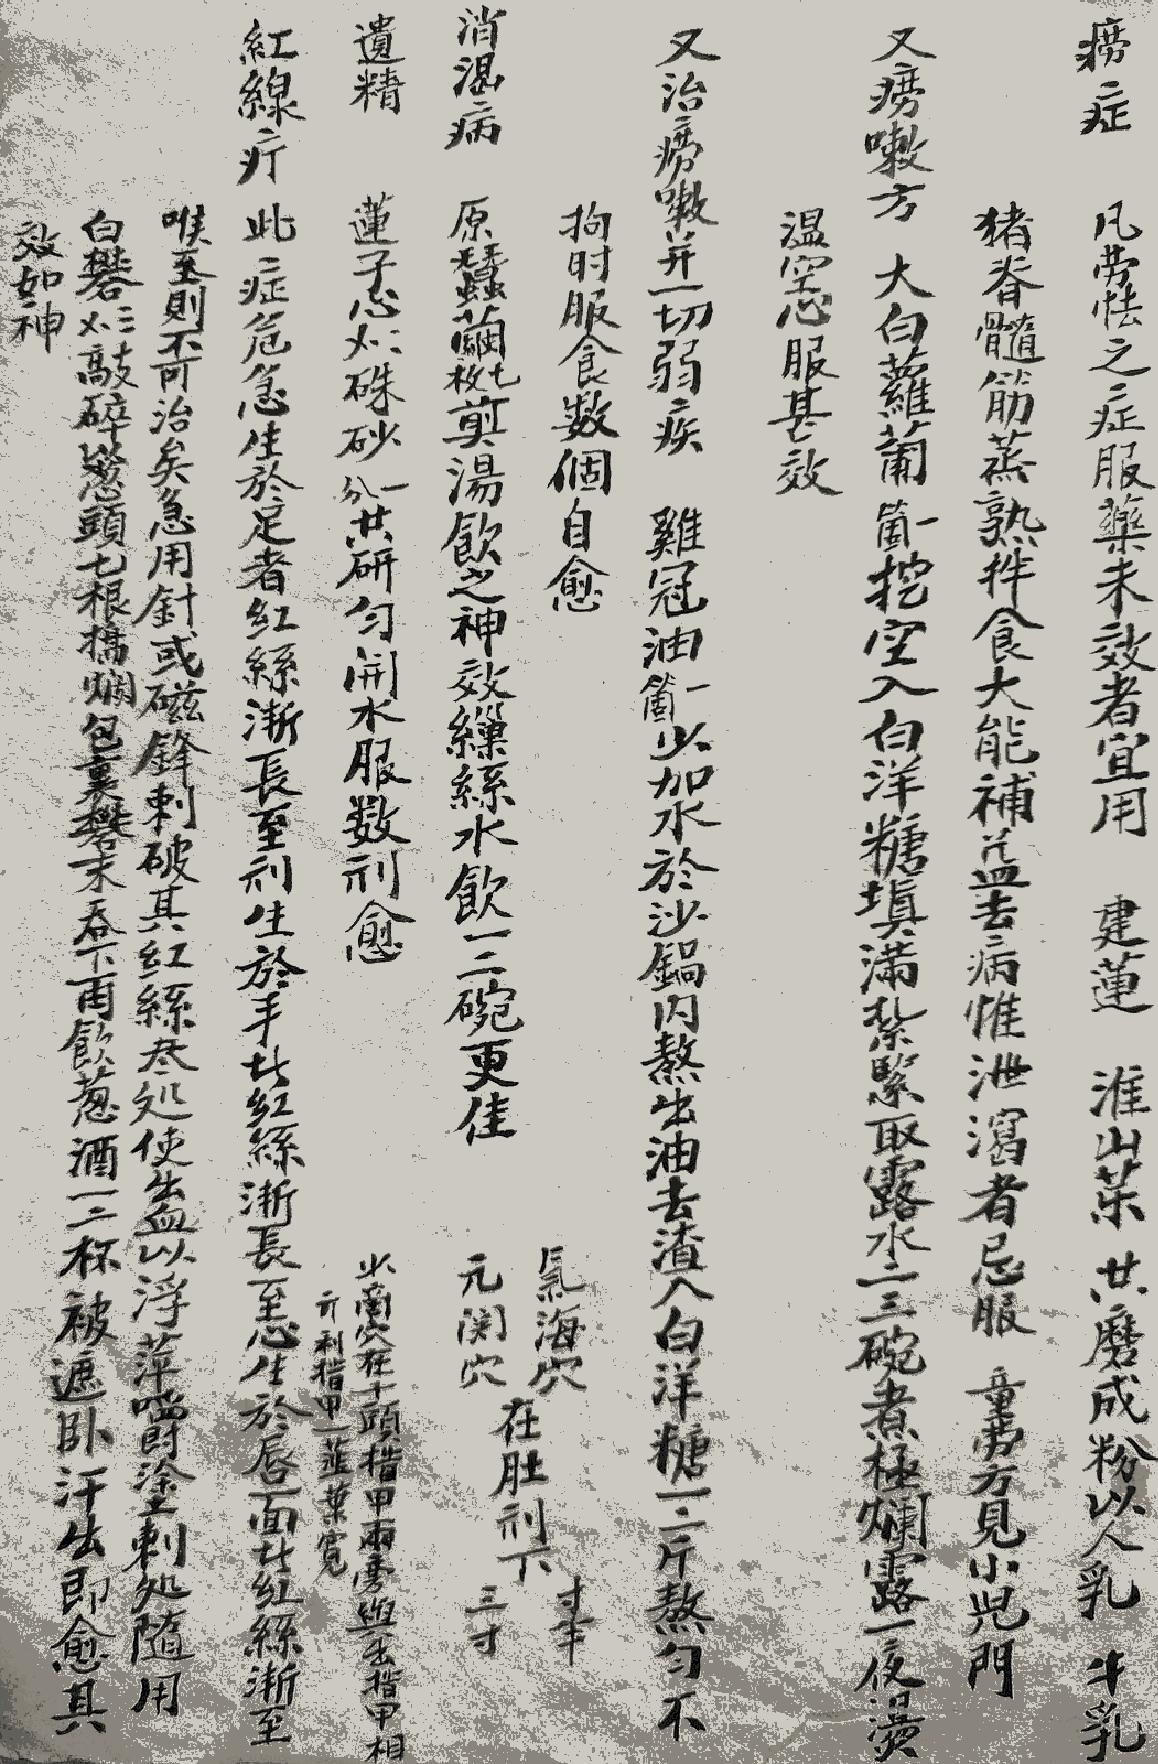 痨症　凡劳怯之症服藥未效者宜用　建蓮　淮山茱　共磨成粉以人乳　牛乳
猪脊髓筋蒸熟拌食大能補益去病惟泄瀉者忌服　童劳方見小児門
又痨嗽方　大白蘿蔔箇一挖空入白洋糖塡滿紥緊取露水二三碗煮極爛露一夜燙
温空心服甚效
又治痨嗽并一切弱疾　雞冠油一箇少加水於沙鍋内熬出油去渣入白洋糖一二斤熬匀不
拘时服食数個自愈
氣海穴　在肚剂下　寸半
元関穴　三寸
消渴病　原蠶繭七枚煎湯飲之神效繅絲水飲一二碗更佳
遺精　蓮子心硃砂一分共研匀開水服数剂愈
少商穴在大頭指甲兩旁與生指甲相
齐利指甲一韮葉寬
紅線疔　此症危急生於足者紅絲漸長至剂生於手者紅絲漸長至心生於唇面者紅絲漸至
喉至則不可治矣急用針或磁鋒刺破其紅絲尽処使出血以浮萍嚼塗刺処隨用
白礬三敲碎葱頭七根搗爛包裏礬末吞下再飲葱酒一二杯被遮卧汗出即愈其
效如神